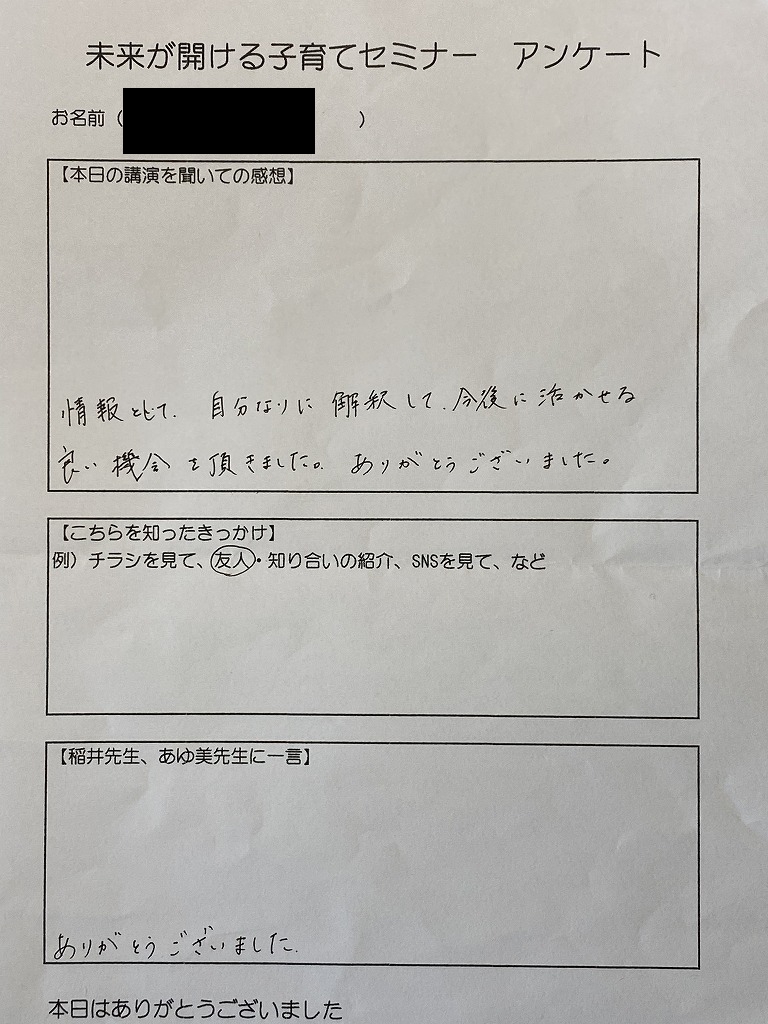 未来が開ける子育てセミナー　アンケート
お名前（　　　）
【本日の講演を聞いての感想】
情報として、自分なりに解釈して、今後に活かせる
良い機会を頂きました。ありがとうございました。
【こちらを知ったきっかけ】
例）チラシを見て、友人・知り合いの紹介、SNSを見て、など
【稲井先生、あゆ美先生に一言】
ありがとうございました。
本日はありがとうございました